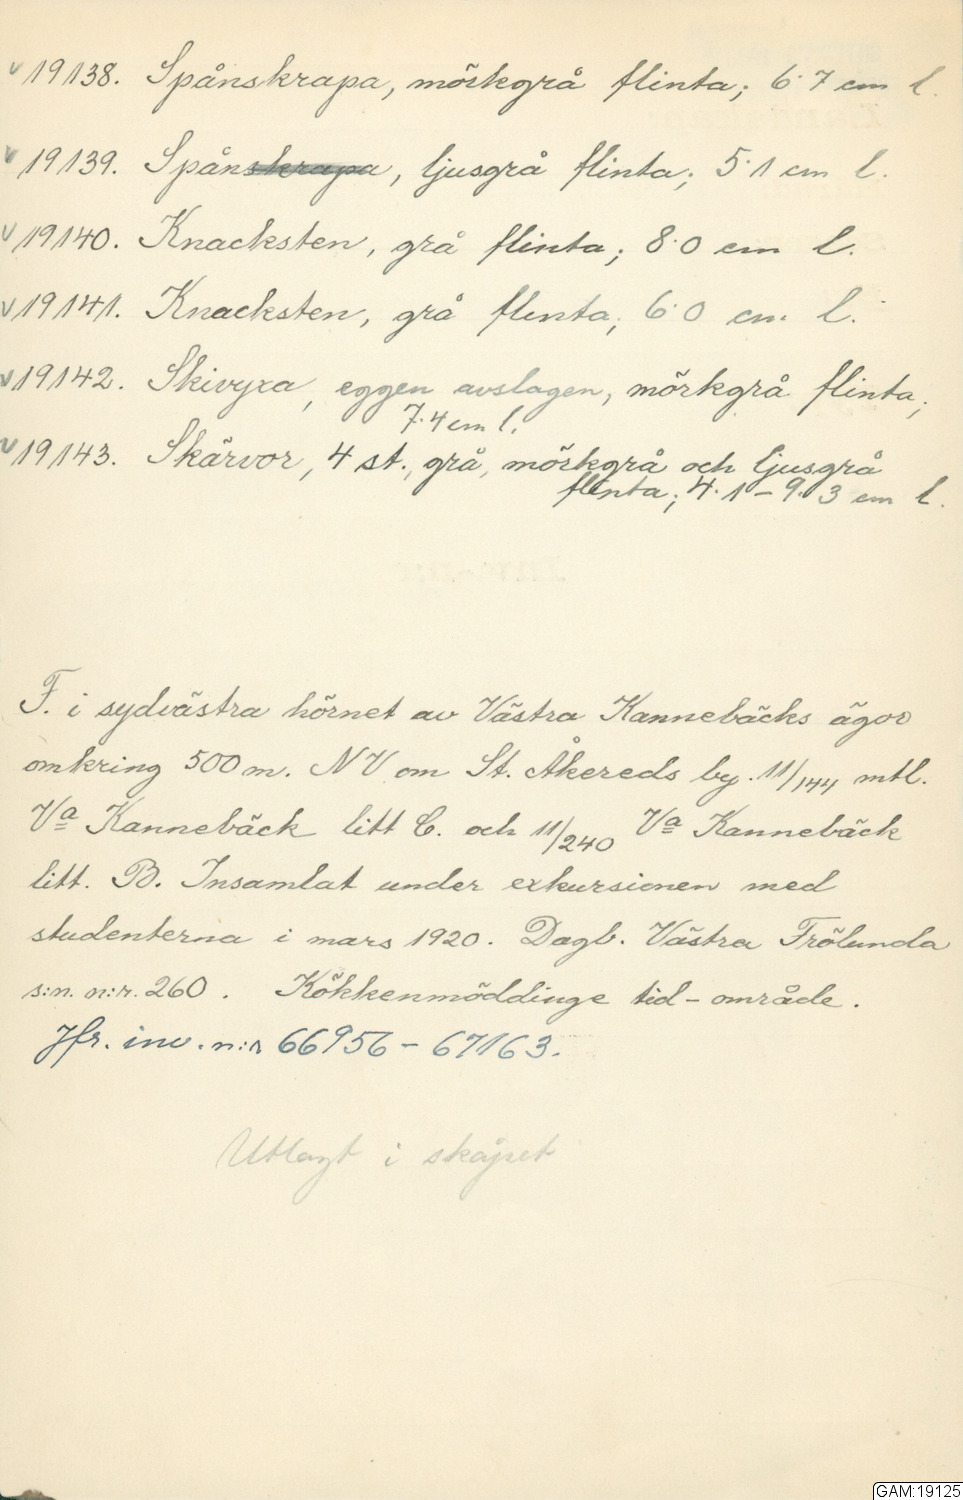 v 19138. Spånskrapa, mörkgrå flinta; 6.7 cm l.
v 19139. Spånskrapa, ljusgrå flinta; 5.1 cm l.
v 19140. Knacksten, grå flinta; 8.0 cm l.
v 19141. Knacksten, grå flinta; 6.0 cm l.
v 19142. Skivyxa, eggen avslagen, mörkgrå flinta;
7.4 cm l.
v 19143. Skärvor, 4 st., grå, mörkgrå och ljusgrå
flinta; 4.1 – 9.3 cm l.
F. i sydvästra hörnet av Västra Kannebäcks ägor
omkring 500 m. NV om St. Åkereds by. 11/144 mtl.
Va Kannebäck litt C. och 11/240 Va Kannebäck
litt. B. Insamlat under exkursionen med
studenterna i mars 1920. Dagb. Västra Frölunda
s:n. n:r. 260. Kökkenmöddinge tid-område.
Jfr. inv. n:r 66956 – 67163.
Utlagt i skåpet
GAM:19125